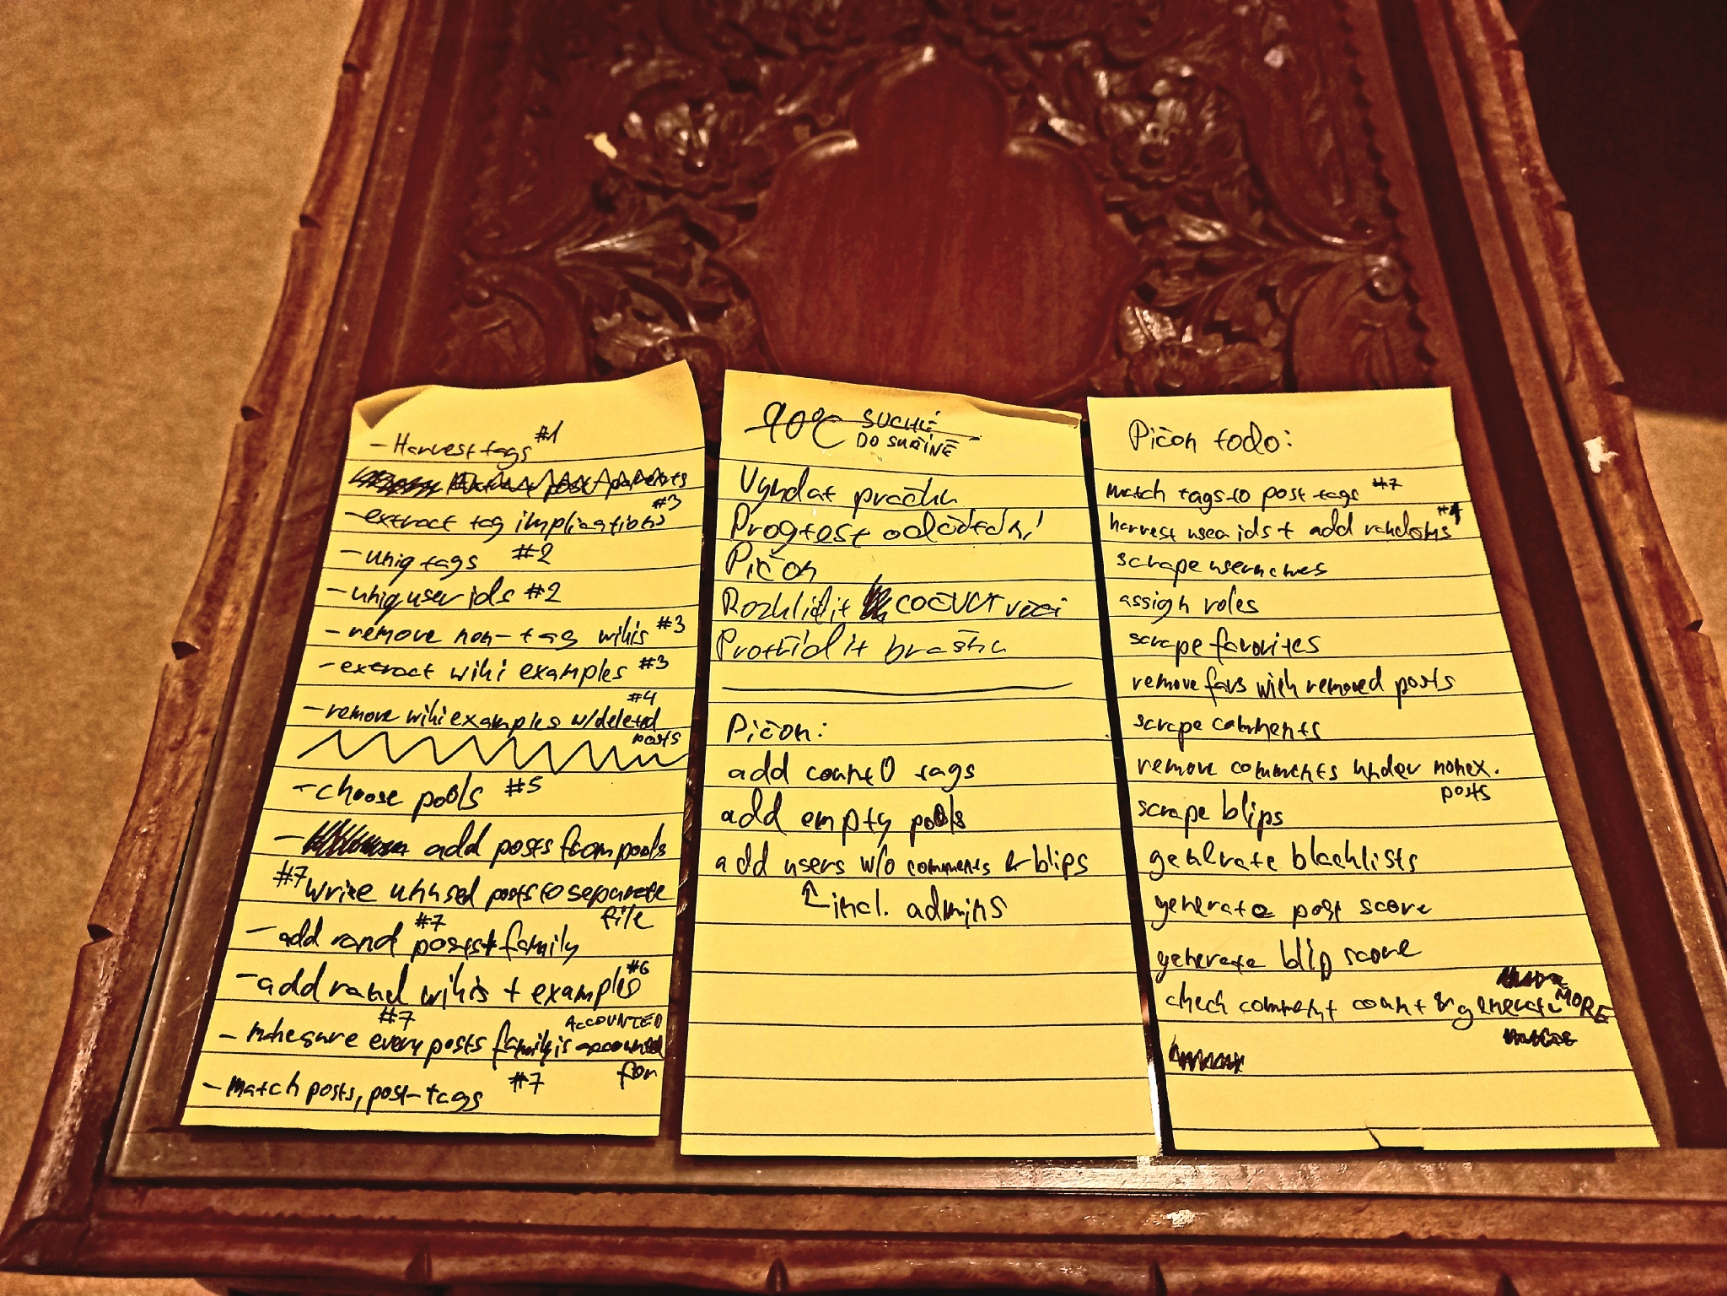 - Harvest tags #1
post parents
- extract tag implications #3
- uniq tags #2
- uniq user ids #2
- remove non-tag wikis #3
- extract wiki examples #3
- remove wiki examples w/deleted #4
posts
- choose pools #5
- add posts from pools
#7 write unused posts to separate
file
- add rand posts + family #7
- add rand wikis + examples #6
- make sure every posts family is accounted #7
ACCOUNTED
for
- match posts, post-tags #7
90°C SUCHÉ
DO SUŠINĚ
Vyndat pračku
Progtest odčítání
Pičon
Rozhlídit COČVČT věci
Protřídit brašnu
Pičon:
add count 0 tags
add empty pools
add users w/o comments & blips
incl. admins
Pičon todo:
match tags to post tags #7
harvest user ids + add randoms #4
scrape usernames
assign roles
scrape favorites
remove favs with removed posts
scrape comments
remove comments under nonex.
posts
scrape blips
generate blacklists
generate post score
generate blip score
check comment count & generate MORE